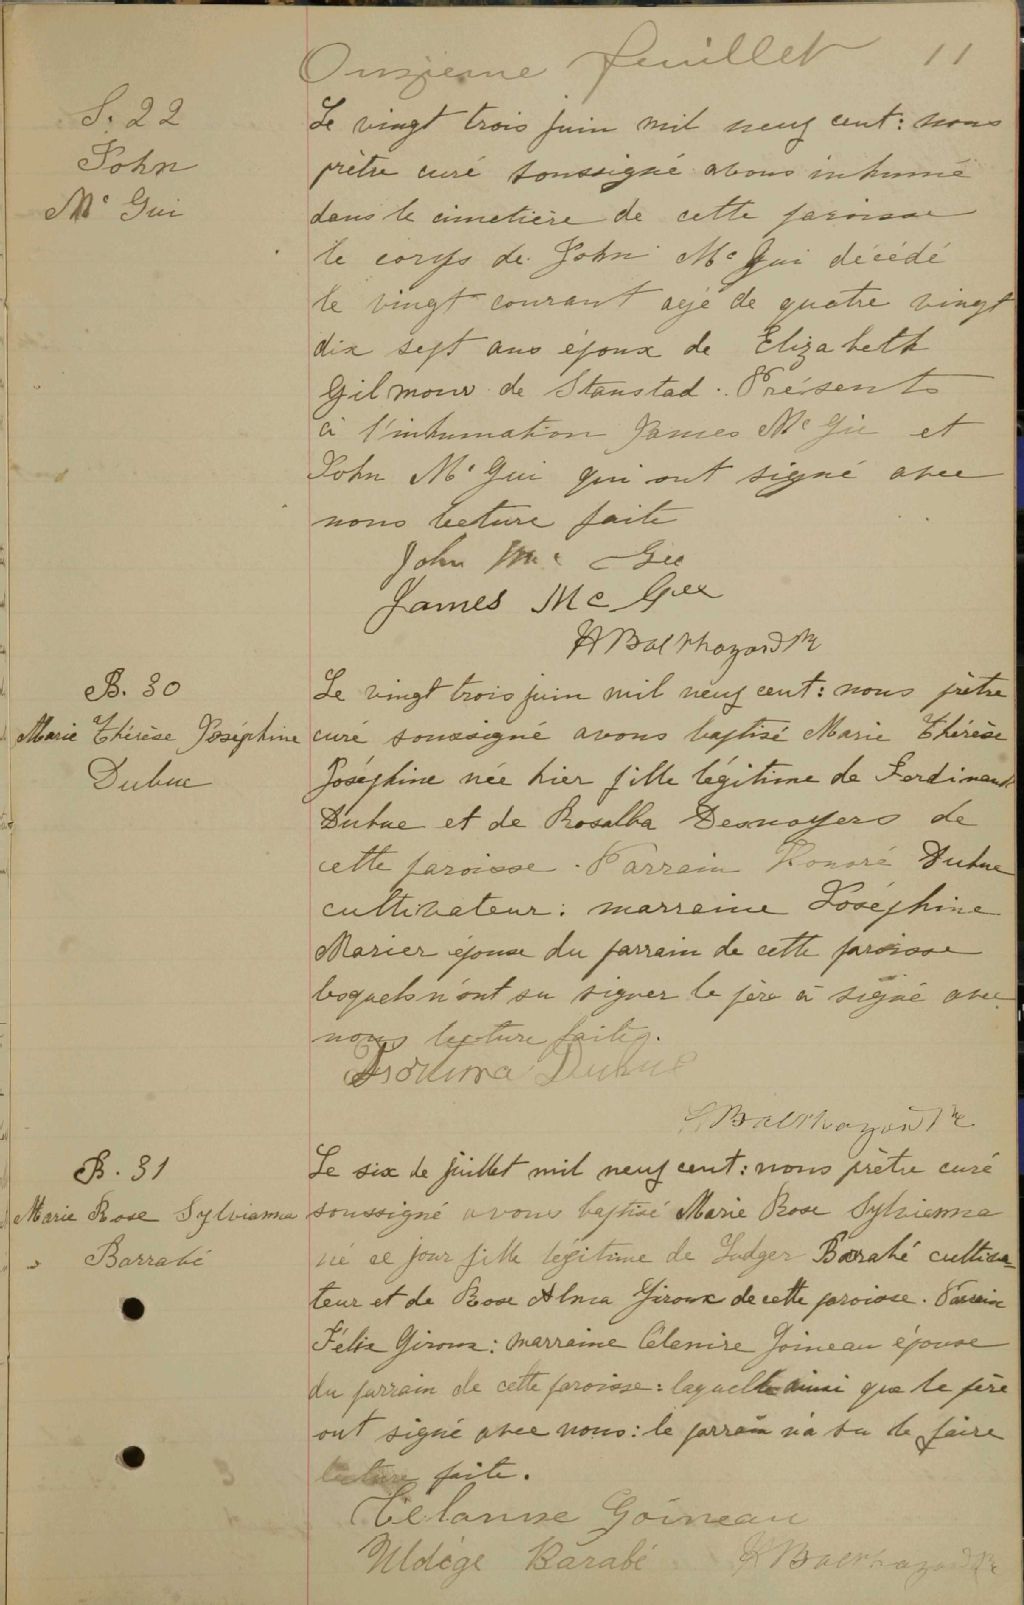 Onzieme feuillet 11
S. 22
John
Mc Gui
Le vingt trois juin mil neuf cent: nous
prêtre curé soussigné avons inhumé
dans le cimetière de cette paroisse
le corps de John Mc Gui décédé
le vingt courant agé de quatre vingt
dix sept ans époux de Elizabeth
Gilmour de Stanstad. Présents
à l'inhumation James Mc Gie et
John Mc Gui qui ont signé avec
nous lecture faite
John Mc Gee
James Mc Gee
Balthazard Ptre
B. 30
Marie Thérèse Joséphine
Dubuc
Le vingt trois juin mil neuf cent: nous prêtre
curé soussigné avons baptisé Marie Thérèse
Joséphine née hier fille légitime de Ferdinand
Dubuc et de Rosalba Desnoyers de
cette paroisse. Parrain Honoré Dubuc
cultivateur: marraine Joséphine
Marier épouse du parrain de cette paroisse
lesquels n'ont su signer le père à signé avec
nous lecture faite.
Dubuc
Balthazard Ptre
B. 31
Marie Rose Sylvianna
Barrabé
Le six de juillet mil neuf cent: nous prêtre curé
soussigné avons baptisé Marie Rose Sylvianna
né ce jour fille légitime de Ludger Barabé cultiva-
teur et de Rose Alma Giroux de cette paroisse. Parrain
Félix Giroux: marraine Célenire Goineau épouse
du parrain de cette paroisse: laquelle ainsi que le père
ont signé avec nous: le parrain n'a su le faire
lecture faite.
Goineau
Barabé Balthazard Ptre